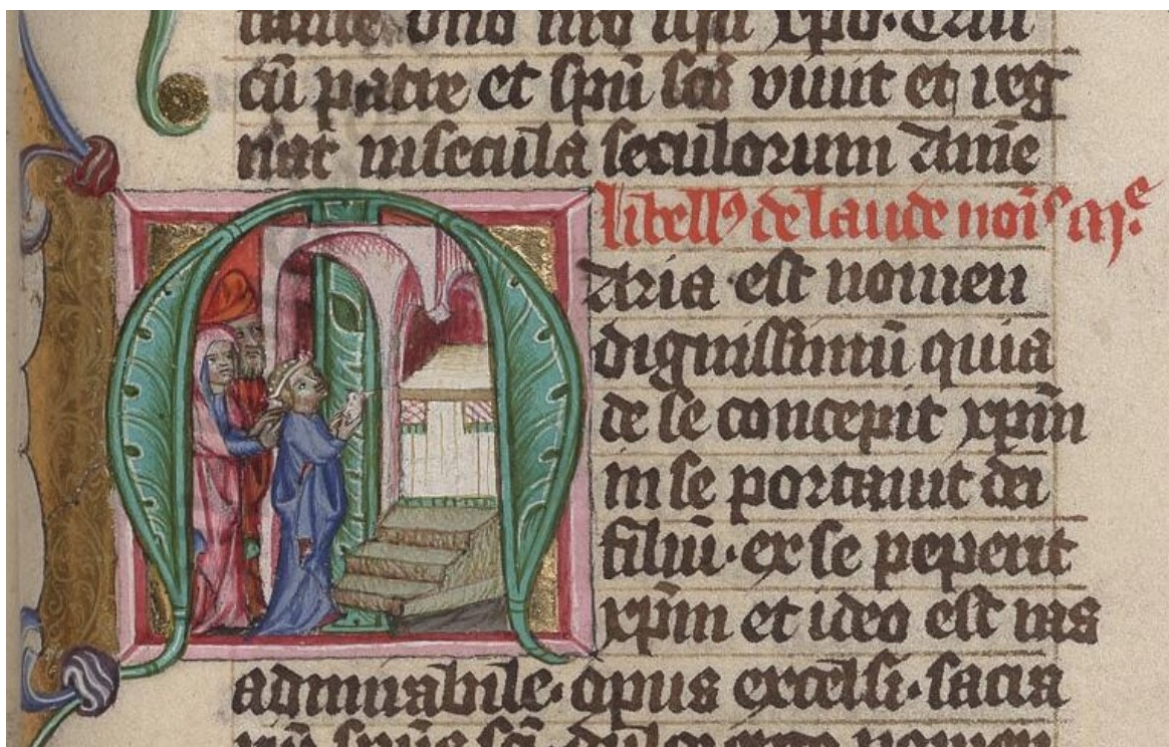 cū patre et spū scō viuit et reg
nat in secula seculorum Ame
libellꝰ de laude nōis mͤ.
Aria est nomen
dignissimū quia
de se concepit xp̄m
in se portauit dei
filiū · ex se peperit
xp̄m et ideo est vas
admirabile · opus excelsi · sacra